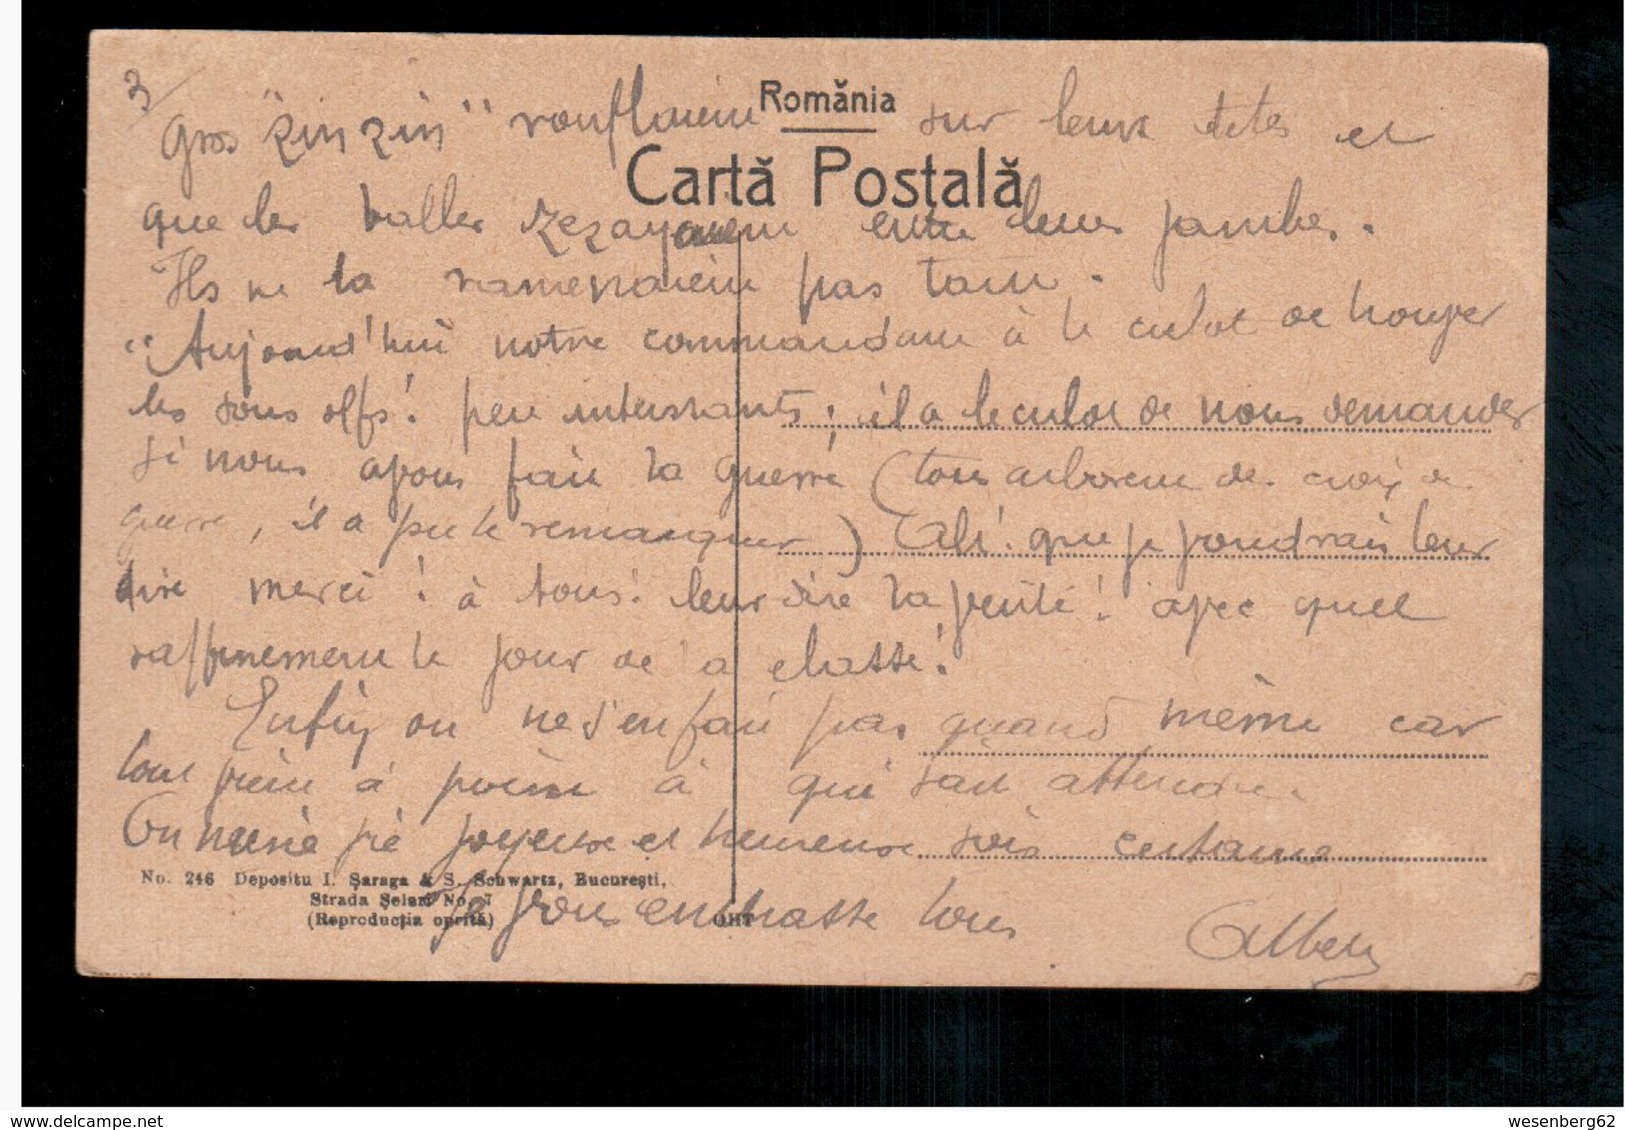 3/
România
Gros "zin zin" ronflaient sur leurs têtes et
Cartă Poștală
que les balles zezayaient entre leurs jambes.
Ils ne la ramenaient pas tant.
"Aujourd'hui notre commandant à le culot de
les sous offs! peu interssants; il a le culot de nous demander
si nous avons fait la guerre (tous arborent des croix de
guerre, il a pu le remarquer) Ah! que je voudrais leur
dire merci! à tous! leur dire la vérité! avec quel
raffinement le jour de la classe!
Enfin on ne s'en fait pas quand même car
tout vient à point à qui sait attendre
On même vie joyeuse et heureuse sois certaine
No. 246 Depositu I. Șaraga & S. Schwartz, București,
Strada Șelari No. 7
(Reproducția oprită)
Je vous embrasse tous
Albert
wesenberg62